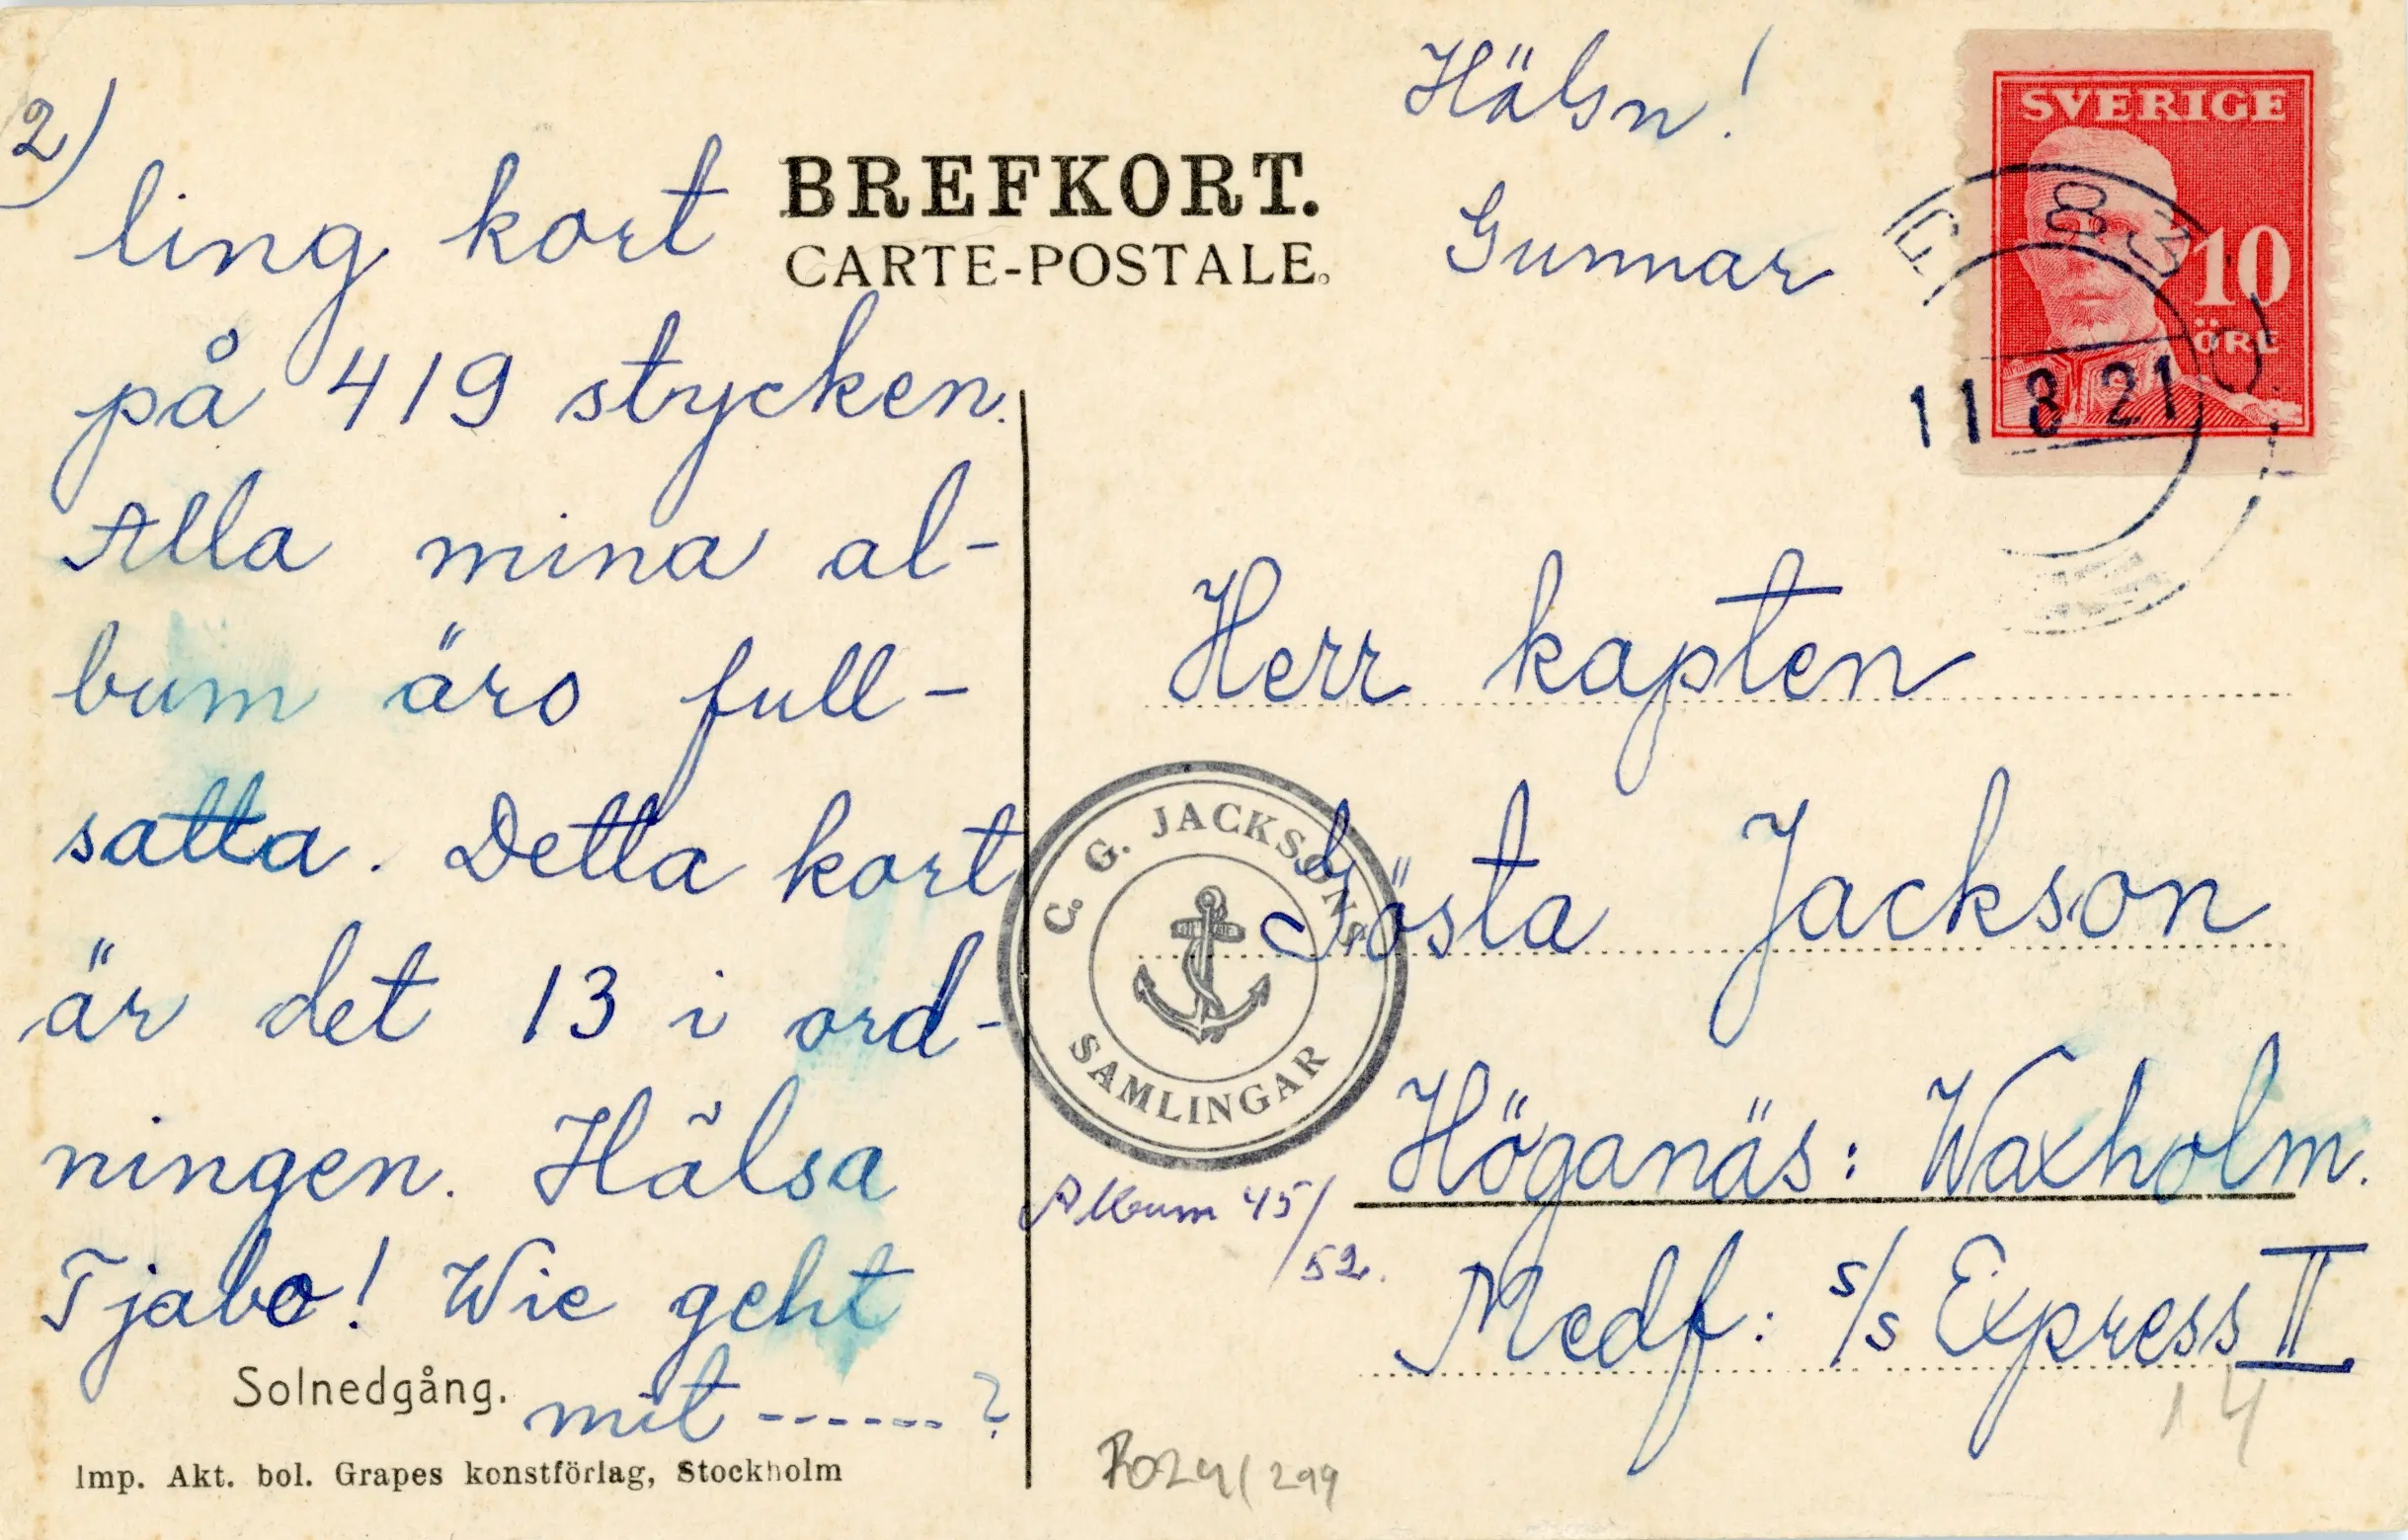 2)
ling kort
på 419 stycken.
Alla mina al-
bum äro full-
satta. Detta kort
är det 13 i ord-
ningen. Hälsa
Tjabo! Wie geht
mit ------ ?
Solnedgång.
Imp. Akt. bol. Grapes konstförlag, Stockholm
BREFKORT.
CARTE-POSTALE.
Hälsn!
Gunnar
SVERIGE
10
ÖRE
11 8 21
Herr kapten
Gösta Jackson
Höganäs: Waxholm.
Medf: s/s Express II
C. G. JACKSONS
SAMLINGAR
Album 45/
52.
14